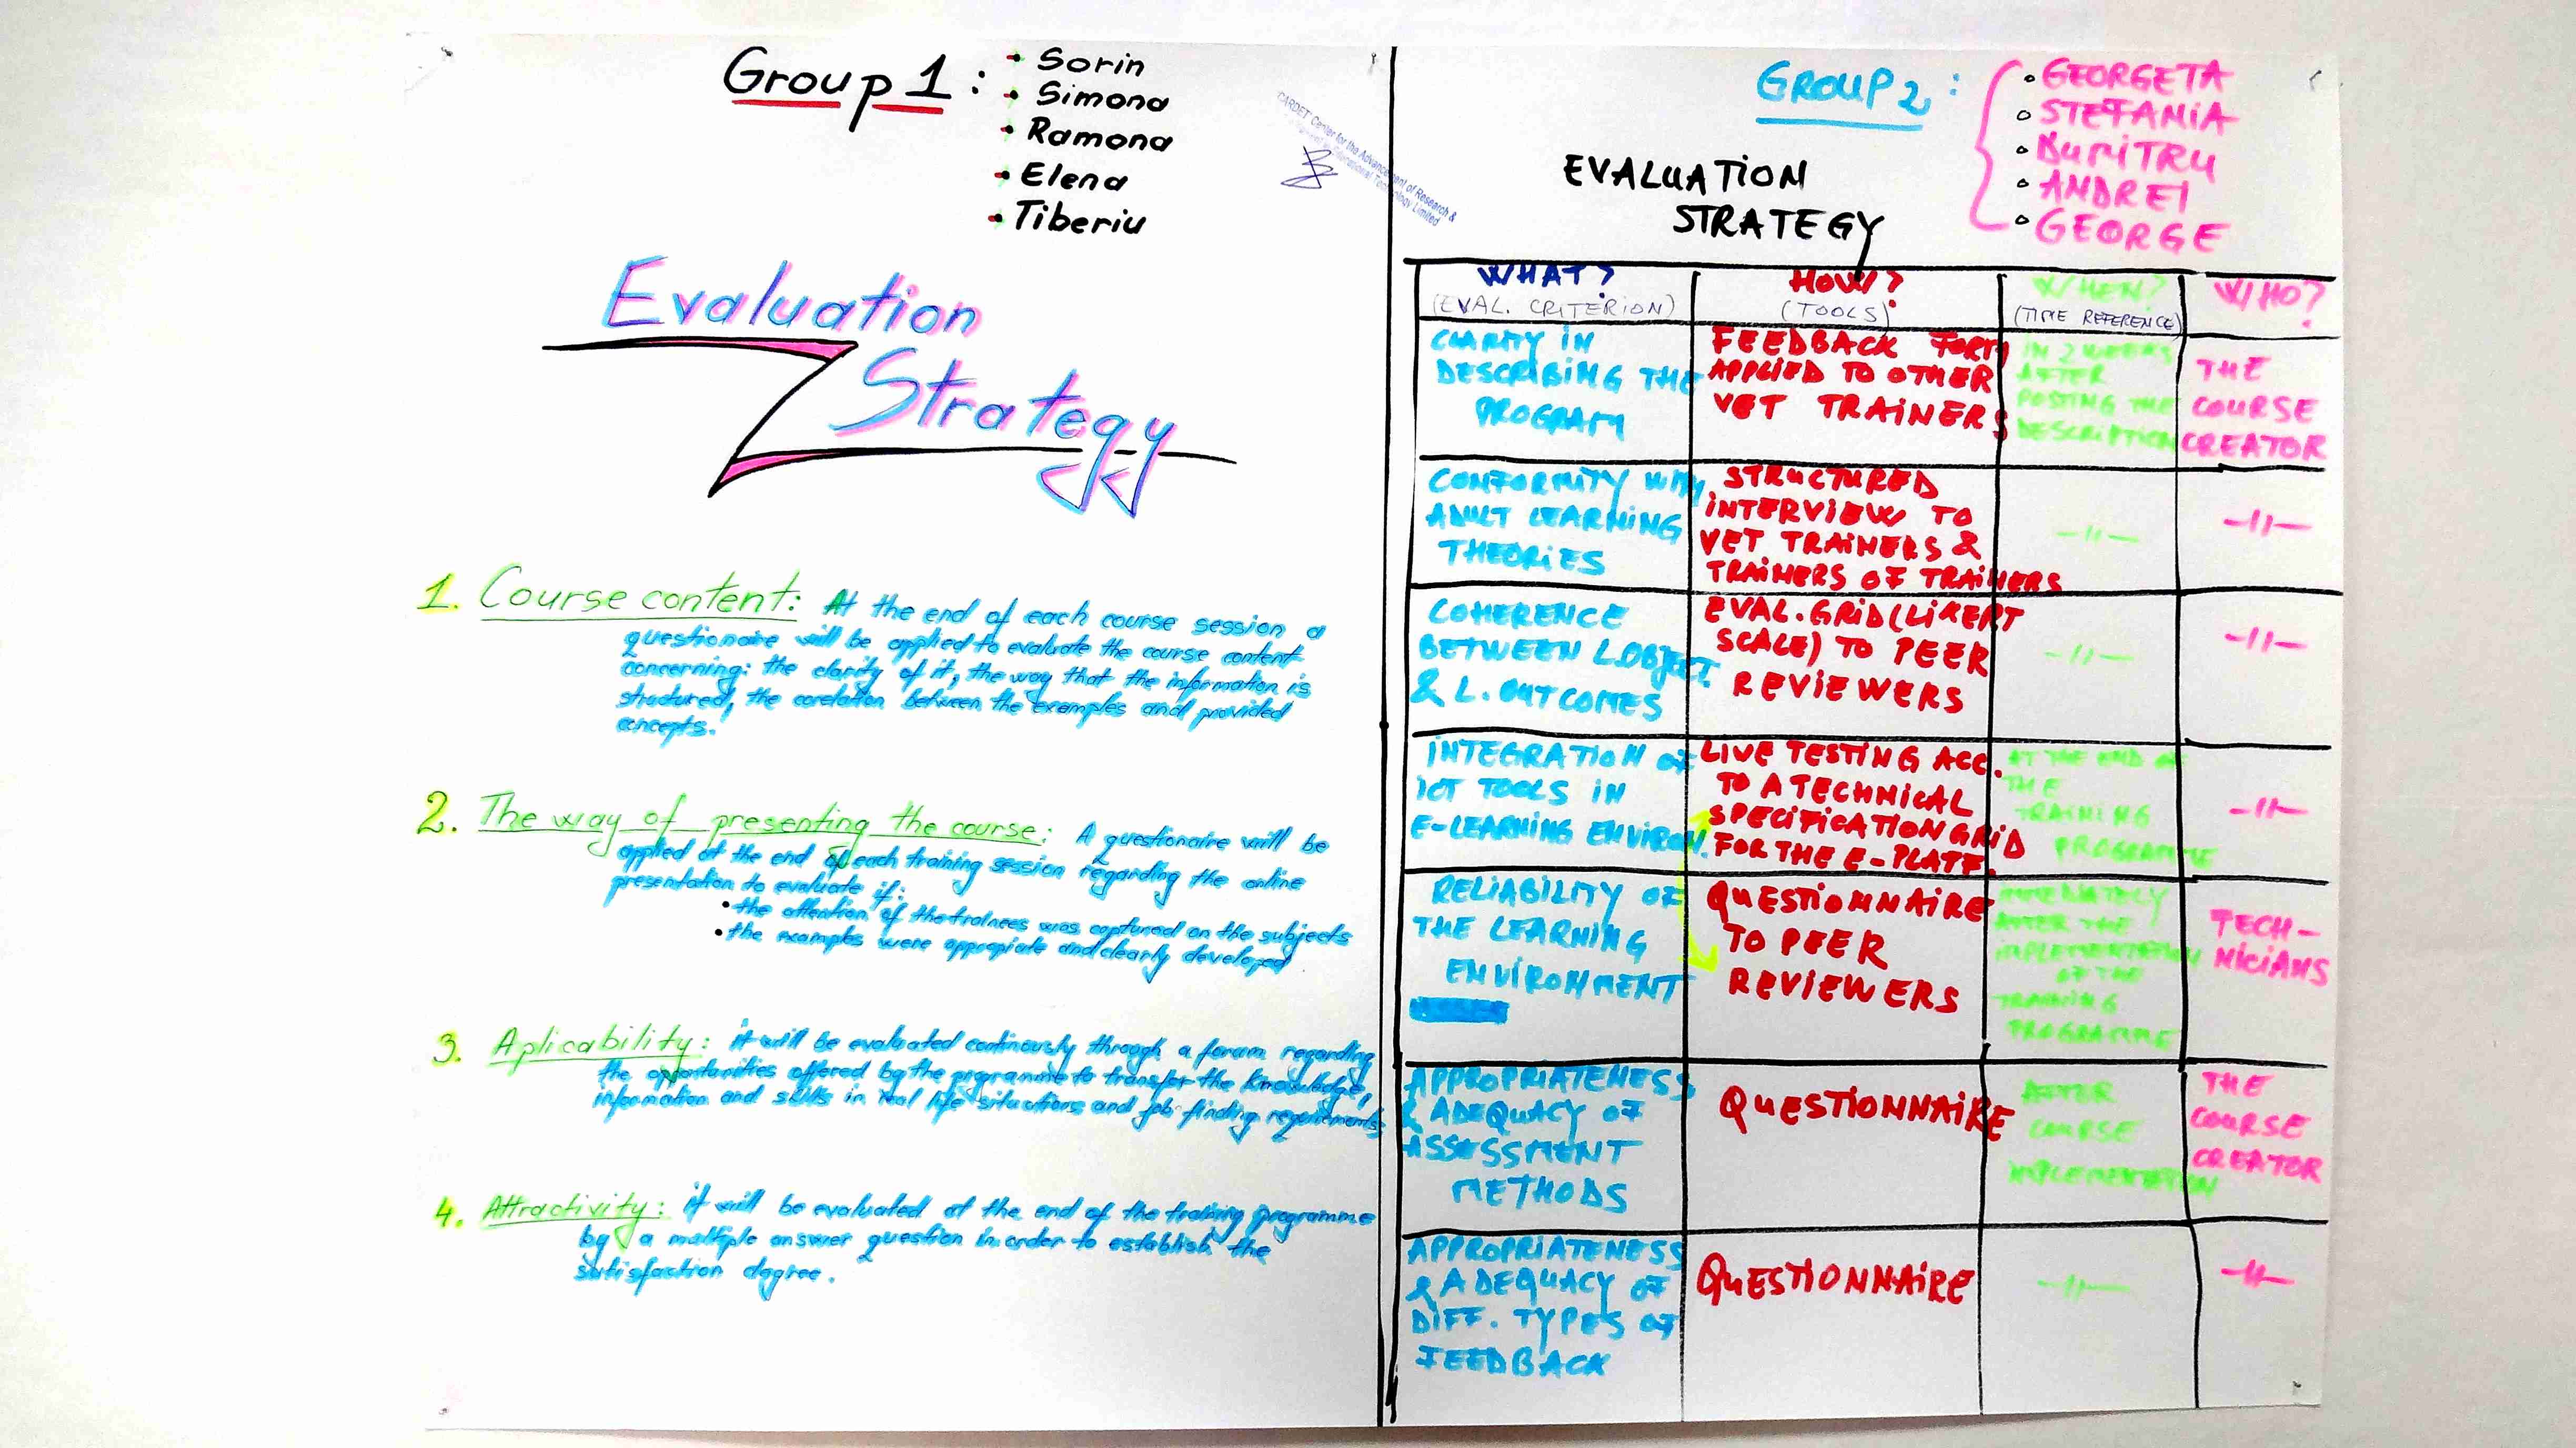 Group 1 :
• Sorin
• Simona
• Ramona
• Elena
• Tiberiu
CARDET Center for the Advancement of Research &
Educational Technology Limited
Evaluation
Strategy
1. Course content: At the end of each course session a
questionaire will be applied to evaluate the course content
concerning: the clarity of it, the way that the information is
structured, the corelation between the examples and provided
concepts.
2. The way of presenting the course: A questionaire will be
applied at the end of each training session regarding the online
presentation to evaluate if:
• the attention of the trainees was captured on the subjects
• the examples were appropiate and clearly developed
3. Aplicability: it will be evaluated continously through a forum regarding
the oportunities offered by the programme to transfer the knowledge,
information and skills in real life situations and job finding requirements.
4. Attractivity: it will be evaluated at the end of the training programme
by a multiple answer question in order to establish the
satisfaction degree.
GROUP 2 :
• GEORGETA
• STEFANIA
• DUMITRU
• ANDREI
• GEORGE
EVALUATION
STRATEGY
WHAT?
(EVAL. CRITERION)
HOW?
(TOOLS)
WHEN?
(TIME REFERENCE)
WHO?
CLARITY IN
DESCRIBING THE
PROGRAM
FEEDBACK FORM
APPLIED TO OTHER
VET TRAINERS
IN 2 WEEKS
AFTER
POSTING THE
DESCRIPTION
THE
COURSE
CREATOR
CONFORMITY WITH
ADULT LEARNING
THEORIES
STRUCTURED
INTERVIEW TO
VET TRAINERS &
TRAINERS OF TRAINERS
—||—
—||—
COHERENCE
BETWEEN L.OBJECT.
& L. OUTCOMES
EVAL. GRID (LIKERT
SCALE) TO PEER
REVIEWERS
—||—
—||—
INTEGRATION OF
ICT TOOLS IN
E-LEARNING ENVIRON.
LIVE TESTING ACC.
TO A TECHNICAL
SPECIFICATION GRID
FOR THE E-PLATF.
AT THE END OF
THE
TRAINING
PROGRAMME
—||—
RELIABILITY OF
THE LEARNING
ENVIRONMENT
QUESTIONNAIRE
TO PEER
REVIEWERS
IMMEDIATELY
AFTER THE
IMPLEMENTATION
OF THE
TRAINING
PROGRAMME
TECH-
NICIANS
APPROPRIATENESS
& ADEQUACY OF
ASSESSMENT
METHODS
QUESTIONNAIRE
AFTER
COURSE
IMPLEMENTATION
THE
COURSE
CREATOR
APPROPRIATENESS
& ADEQUACY OF
DIFF. TYPES OF
FEEDBACK
QUESTIONNAIRE
—||—
—||—